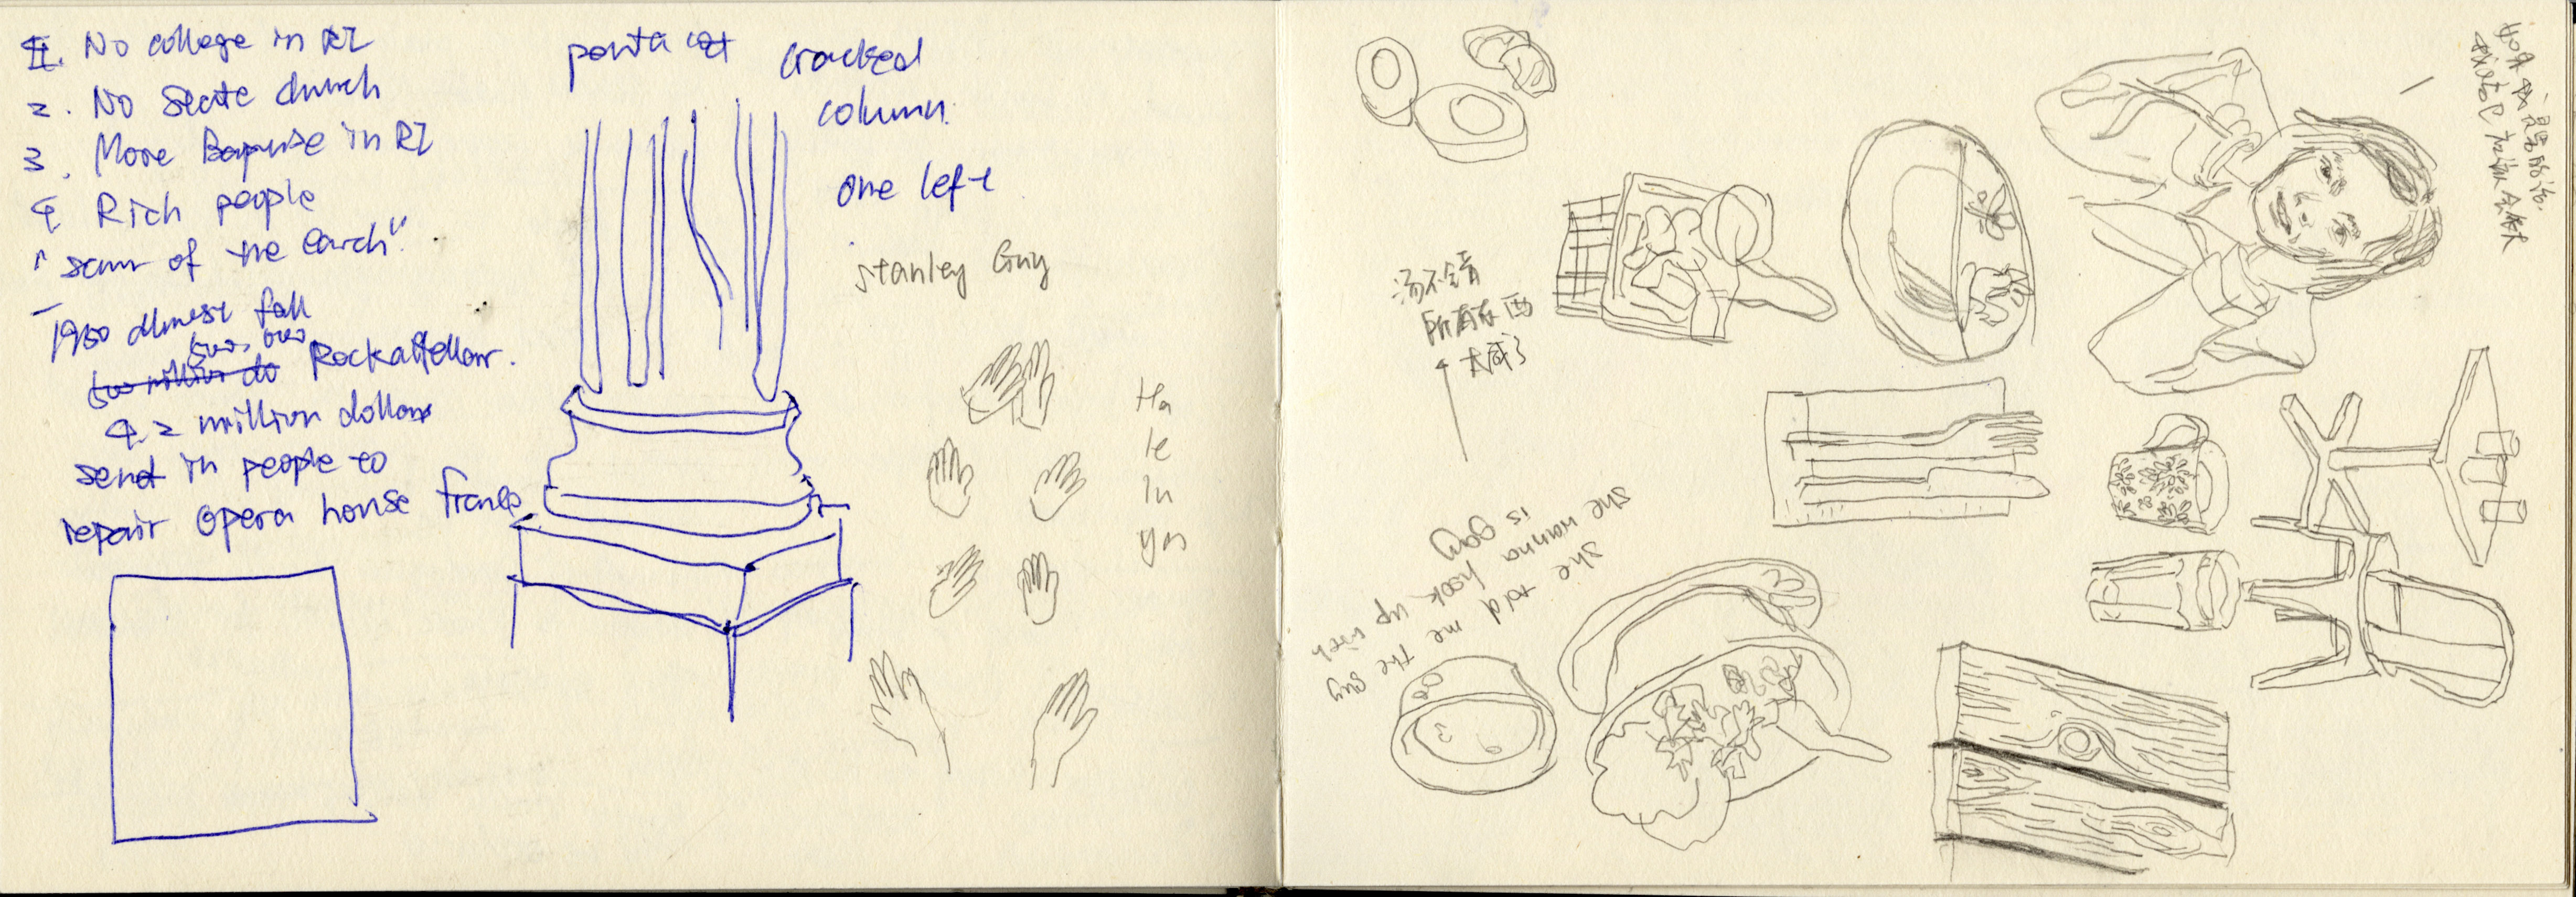 1. No college in RI
2. No State church
3. More Bapuise in RI
4 Rich people
"scum of the Earth"
1950 almost fall
over Rockafellow.
4.2 million dollars
send in people to
repair opera house France
cracked
column.
one left
Stanley Guy
Ha
le
lu
yes
汤不错
所有东西
太咸了
she told me the guy
she wanna hook up with
is gay